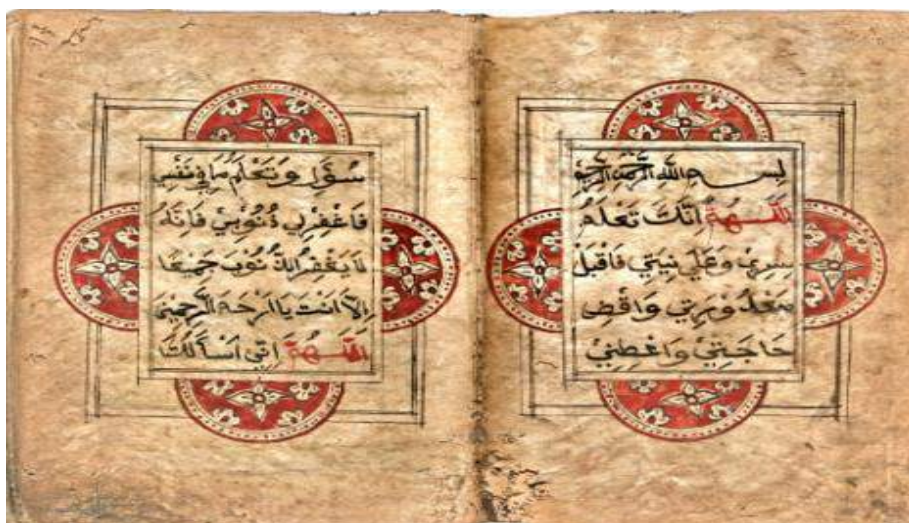 بسم الله الرحمن الرحيم
اللهمة انك تعلم
سري وعلي نيتي فاقبل
معذورتي واقض
حاجتي واغطني
سؤلي وتعلم ما في نفسي
فاغفر لي ذنوبي فانه
لا يغفر الذنوب جميعا
الا انت يا ارحم الرحمين
اللهمة اني اسألك